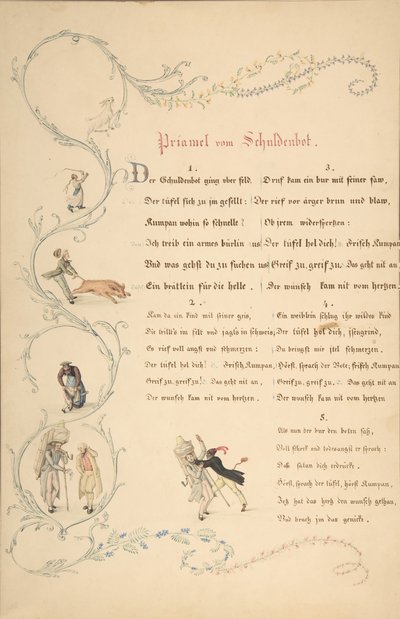 Priamel vom Schuldenbot.
1.
Der Schuldenbot ging uber feld,
Der tüfel sich zu jm gesellt:
Kumpan wohin so schnelle?
Ich treib ein armes bürlin us
Vnd was gehst du zu suchen us
Ein brätlein für die helle.
2.
Kam da ein kind mit seiner gris,
Die trillt's im felt und jagts in schweis;
Es rief voll angst und schmerzen:
Der tüfel hol dich! Frisch Kumpan,
Greif zu, greif zu! Das geht nit an,
Der wunsch kam nit vom hertzen.
3.
Druf kam ein bur mit seiner saw,
Der rief vor ärger brun und blaw,
Ob jrem widersperßen:
Der tüfel hol dich! Frisch Kumpan
Greif zu, greif zu, Das geht nit an,
Der wünsch kam nit vom hertzen.
4.
Ein weiblin schlug ihr wildes kind
Der tüfel hol dich,
Du bringst mir jtel schmerzen.
Hörst, sprach der Bote; frisch Kumpan
Greif zu, greif zu, Das geht nit an
Der wunsch kam nit vom hertzen
5.
Als nun der bur den boten sah,
Voll schreck und todesangst er sprach:
Daß satan dich erdrücke,
Hörst, sprach der tüfel, hörst Kumpan,
Jetz hat das hertz den wunsch gethan,
Vnd brach jm das genicke.